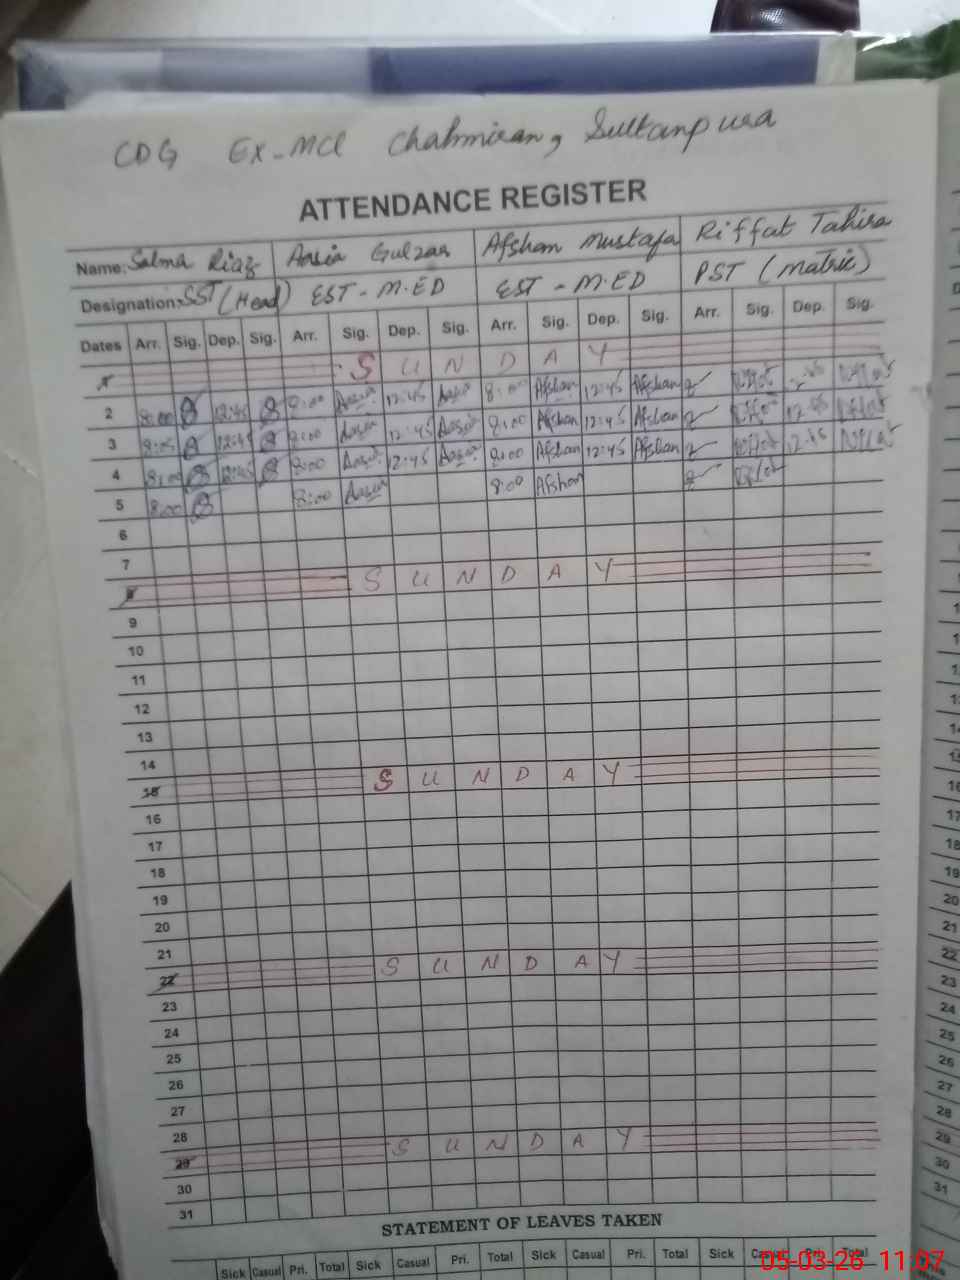 CDG Ex-MCL Chahmiran, Sultanpura
ATTENDANCE REGISTER
Name: Salma Riaz Aasia Gulzar Afshan Mustafa Riffat Tahira
Designation: SST (Head) EST - M.ED EST - M.ED PST (Matric)
Dates Arr. Sig. Dep. Sig. Arr. Sig. Dep. Sig. Arr. Sig. Dep. Sig. Arr. Sig. Dep. Sig.
1 SUNDAY
2 8:00 12:45 8:00 Aasia 12:45 Aasia 8:00 Afshan 12:45 Afshan
3 8:05 12:45 8:00 Aasia 12:45 Aasia 8:00 Afshan 12:45 Afshan 12:45
4 8:00 12:45 8:00 Aasia 12:45 Aasia 8:00 Afshan 12:45 Afshan 12:45
5 8:00 8:00 Aasia 8:00 Afshan
6
7
8 SUNDAY
9
10
11
12
13
14
15 SUNDAY
16
17
18
19
20
21
22 SUNDAY
23
24
25
26
27
28
29 SUNDAY
30
31
STATEMENT OF LEAVES TAKEN
Sick Casual Pri. Total Sick Casual Pri. Total Sick Casual Pri. Total Sick Total
05-03-26 11:07